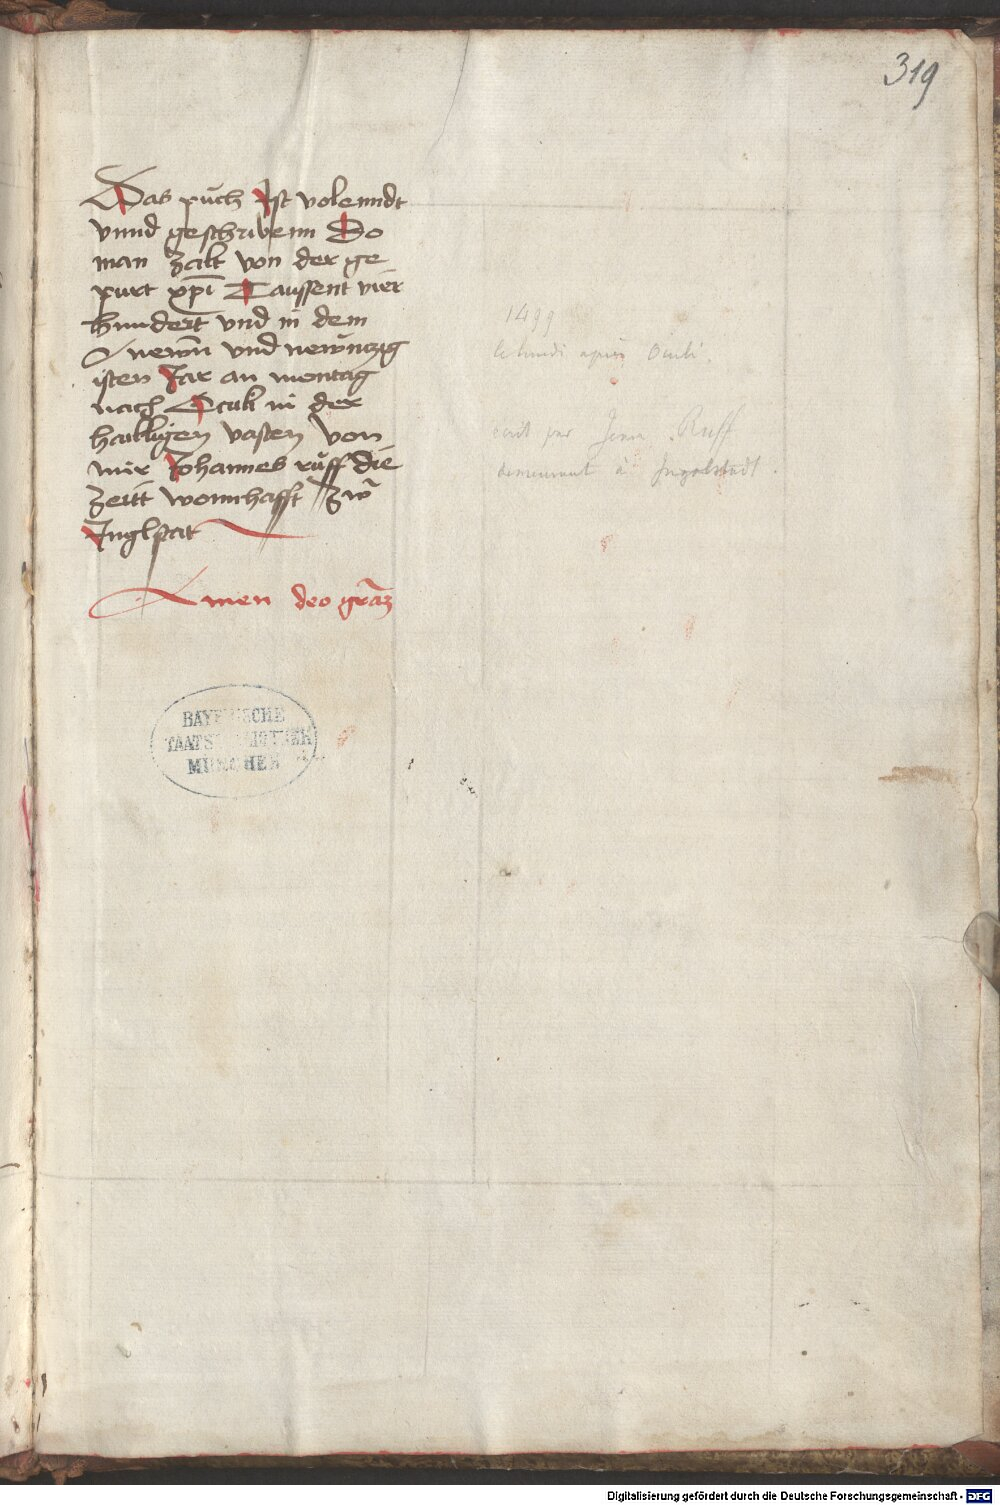 319
Das pùch Ist volenndt
vnnd geschribenn Do
man zalt von der ge
purt xp̄i Taussent vier
hundert vnd in dem
Newn̄ vnd newntzig
isten Jar an montag
nach Oculi in der
hailligen vasten von
mir Johannes rùff die
zeitt wonnhafft zw̄
Inglstat
Amen deo gr̄az
1499
le lundi après Oculi.
écrit par Jean Ruff
demeurant à Ingolstadt.
BAYERISCHE
STAATSBIBLIOTHEK
MÜNCHEN
Digitalisierung gefördert durch die Deutsche Forschungsgemeinschaft - DFG